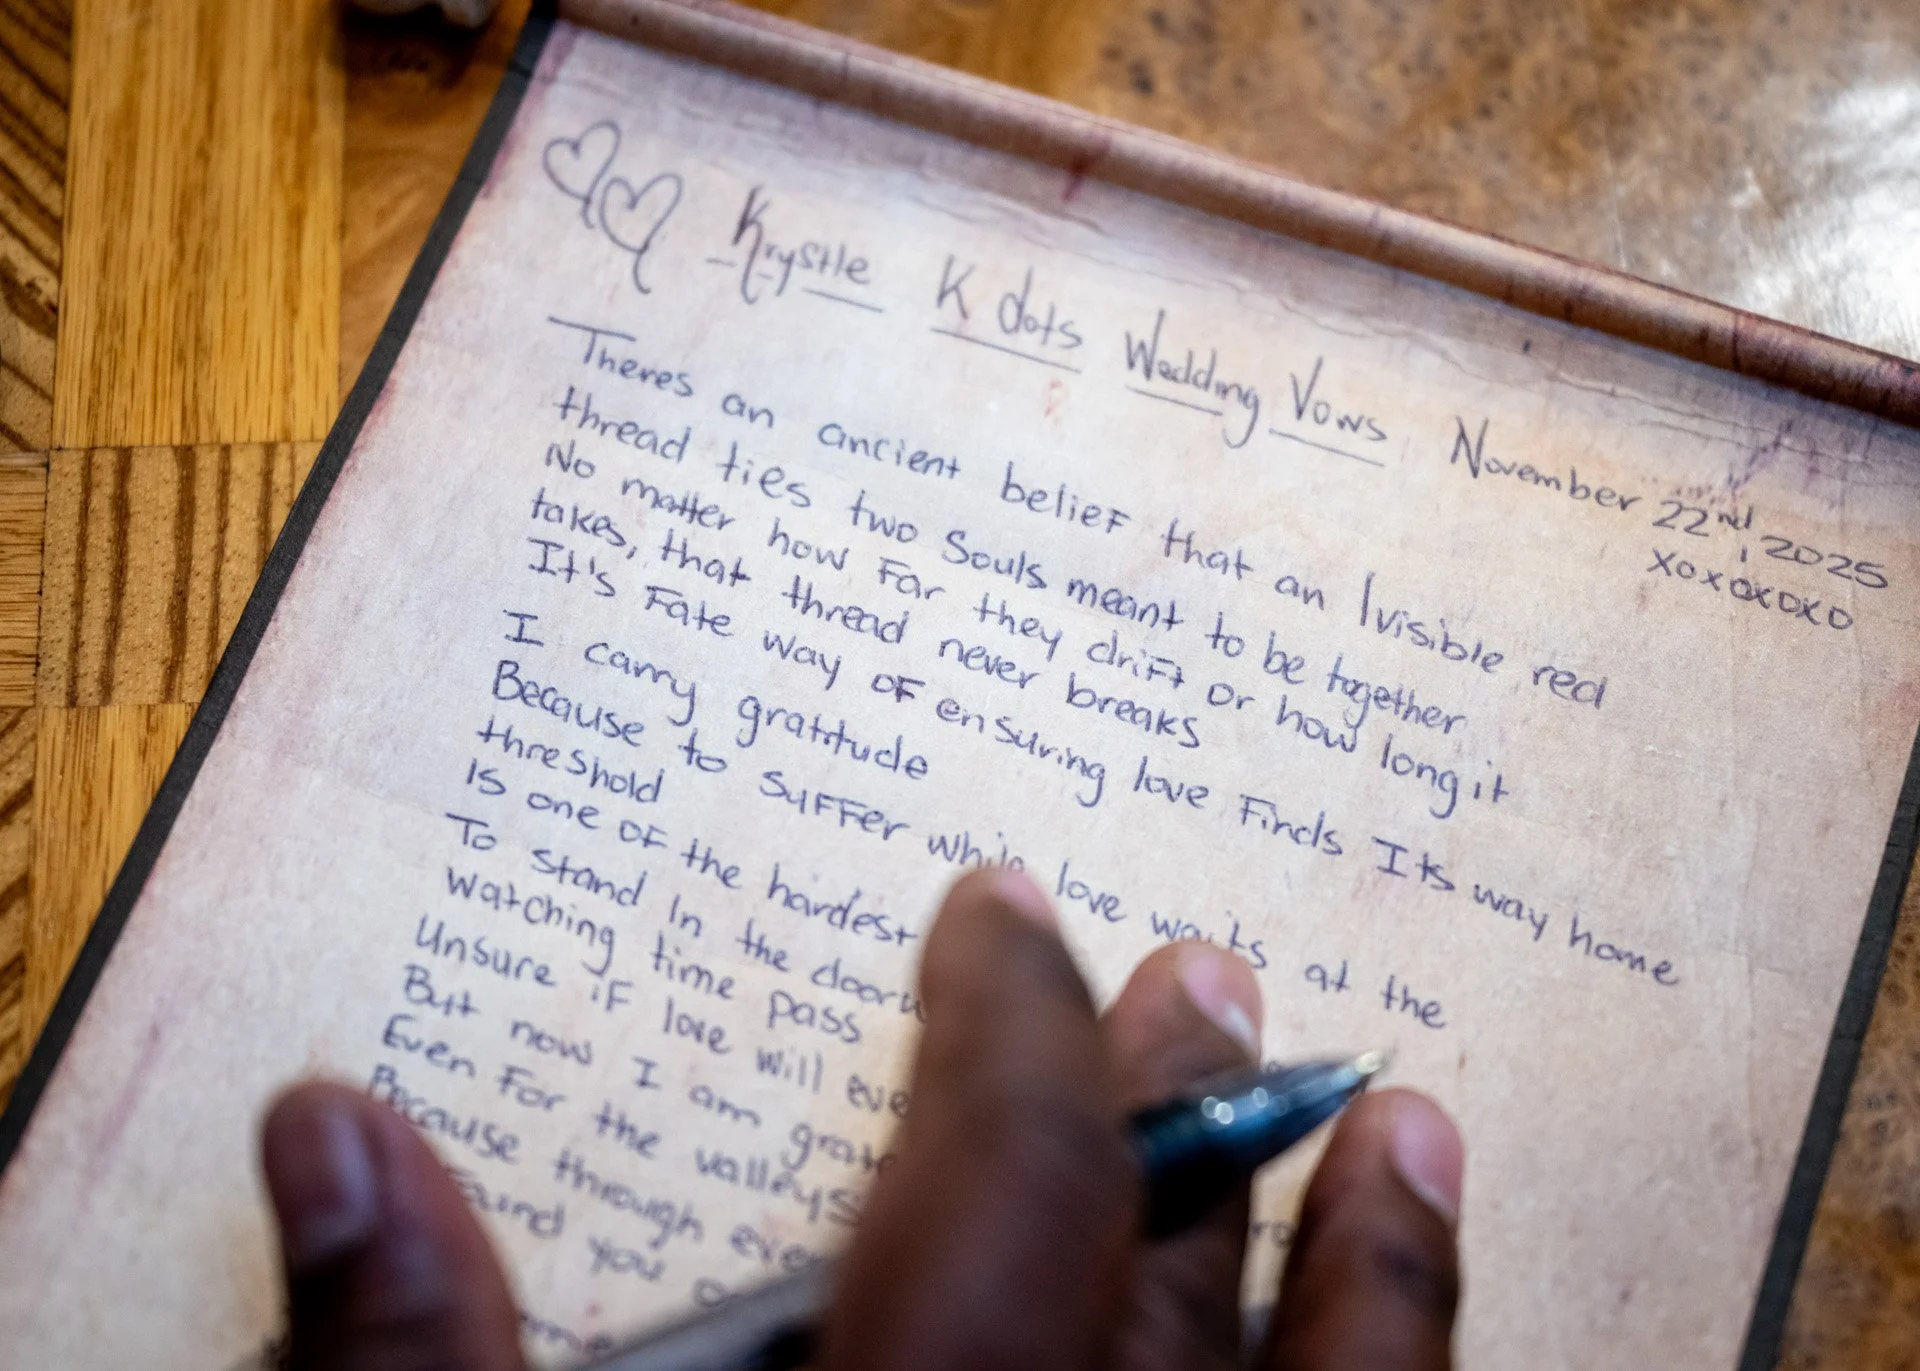 Krystle K dots Wedding Vows November 22nd, 2025
xoxoxoxo
Theres an ancient belief that an Ivisible red
thread ties two Souls meant to be together
No matter how Far they drift or how long it
takes, that thread never breaks
It's Fate way of ensuring love Finds Its way home
I carry gratitude
Because to suffer while love waits at the
threshold
is one of the hardest
To stand In the
watching time pass
Unsure if love will
But now I am
Even For the valleys
Because through
Found you